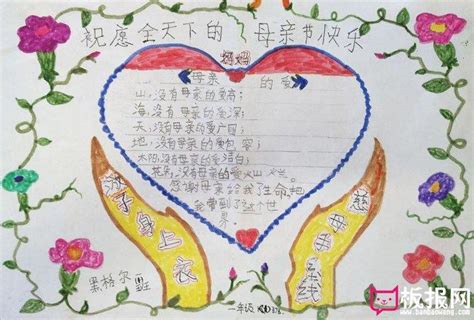 祝愿全天下的 母亲节快乐
妈妈
母亲 的爱
山,没有母亲的爱高;
海,没有母亲的爱深;
天,没有母亲的爱广阔;
地,没有母亲的爱包容;
太阳,没有母亲的爱
花朵,没有母亲的爱灿烂。
感谢母亲给我了生命,把
我带到了这个世
界。
慈母手中线
游子身上衣
黑格尔 班
一年级
板报网
www.banbaowang.com